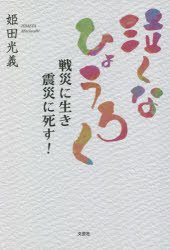 泣くな
ひょうろく
戦災に生き
震災に死す!
姫田光義
HIMETA Mitsuyoshi
文芸社